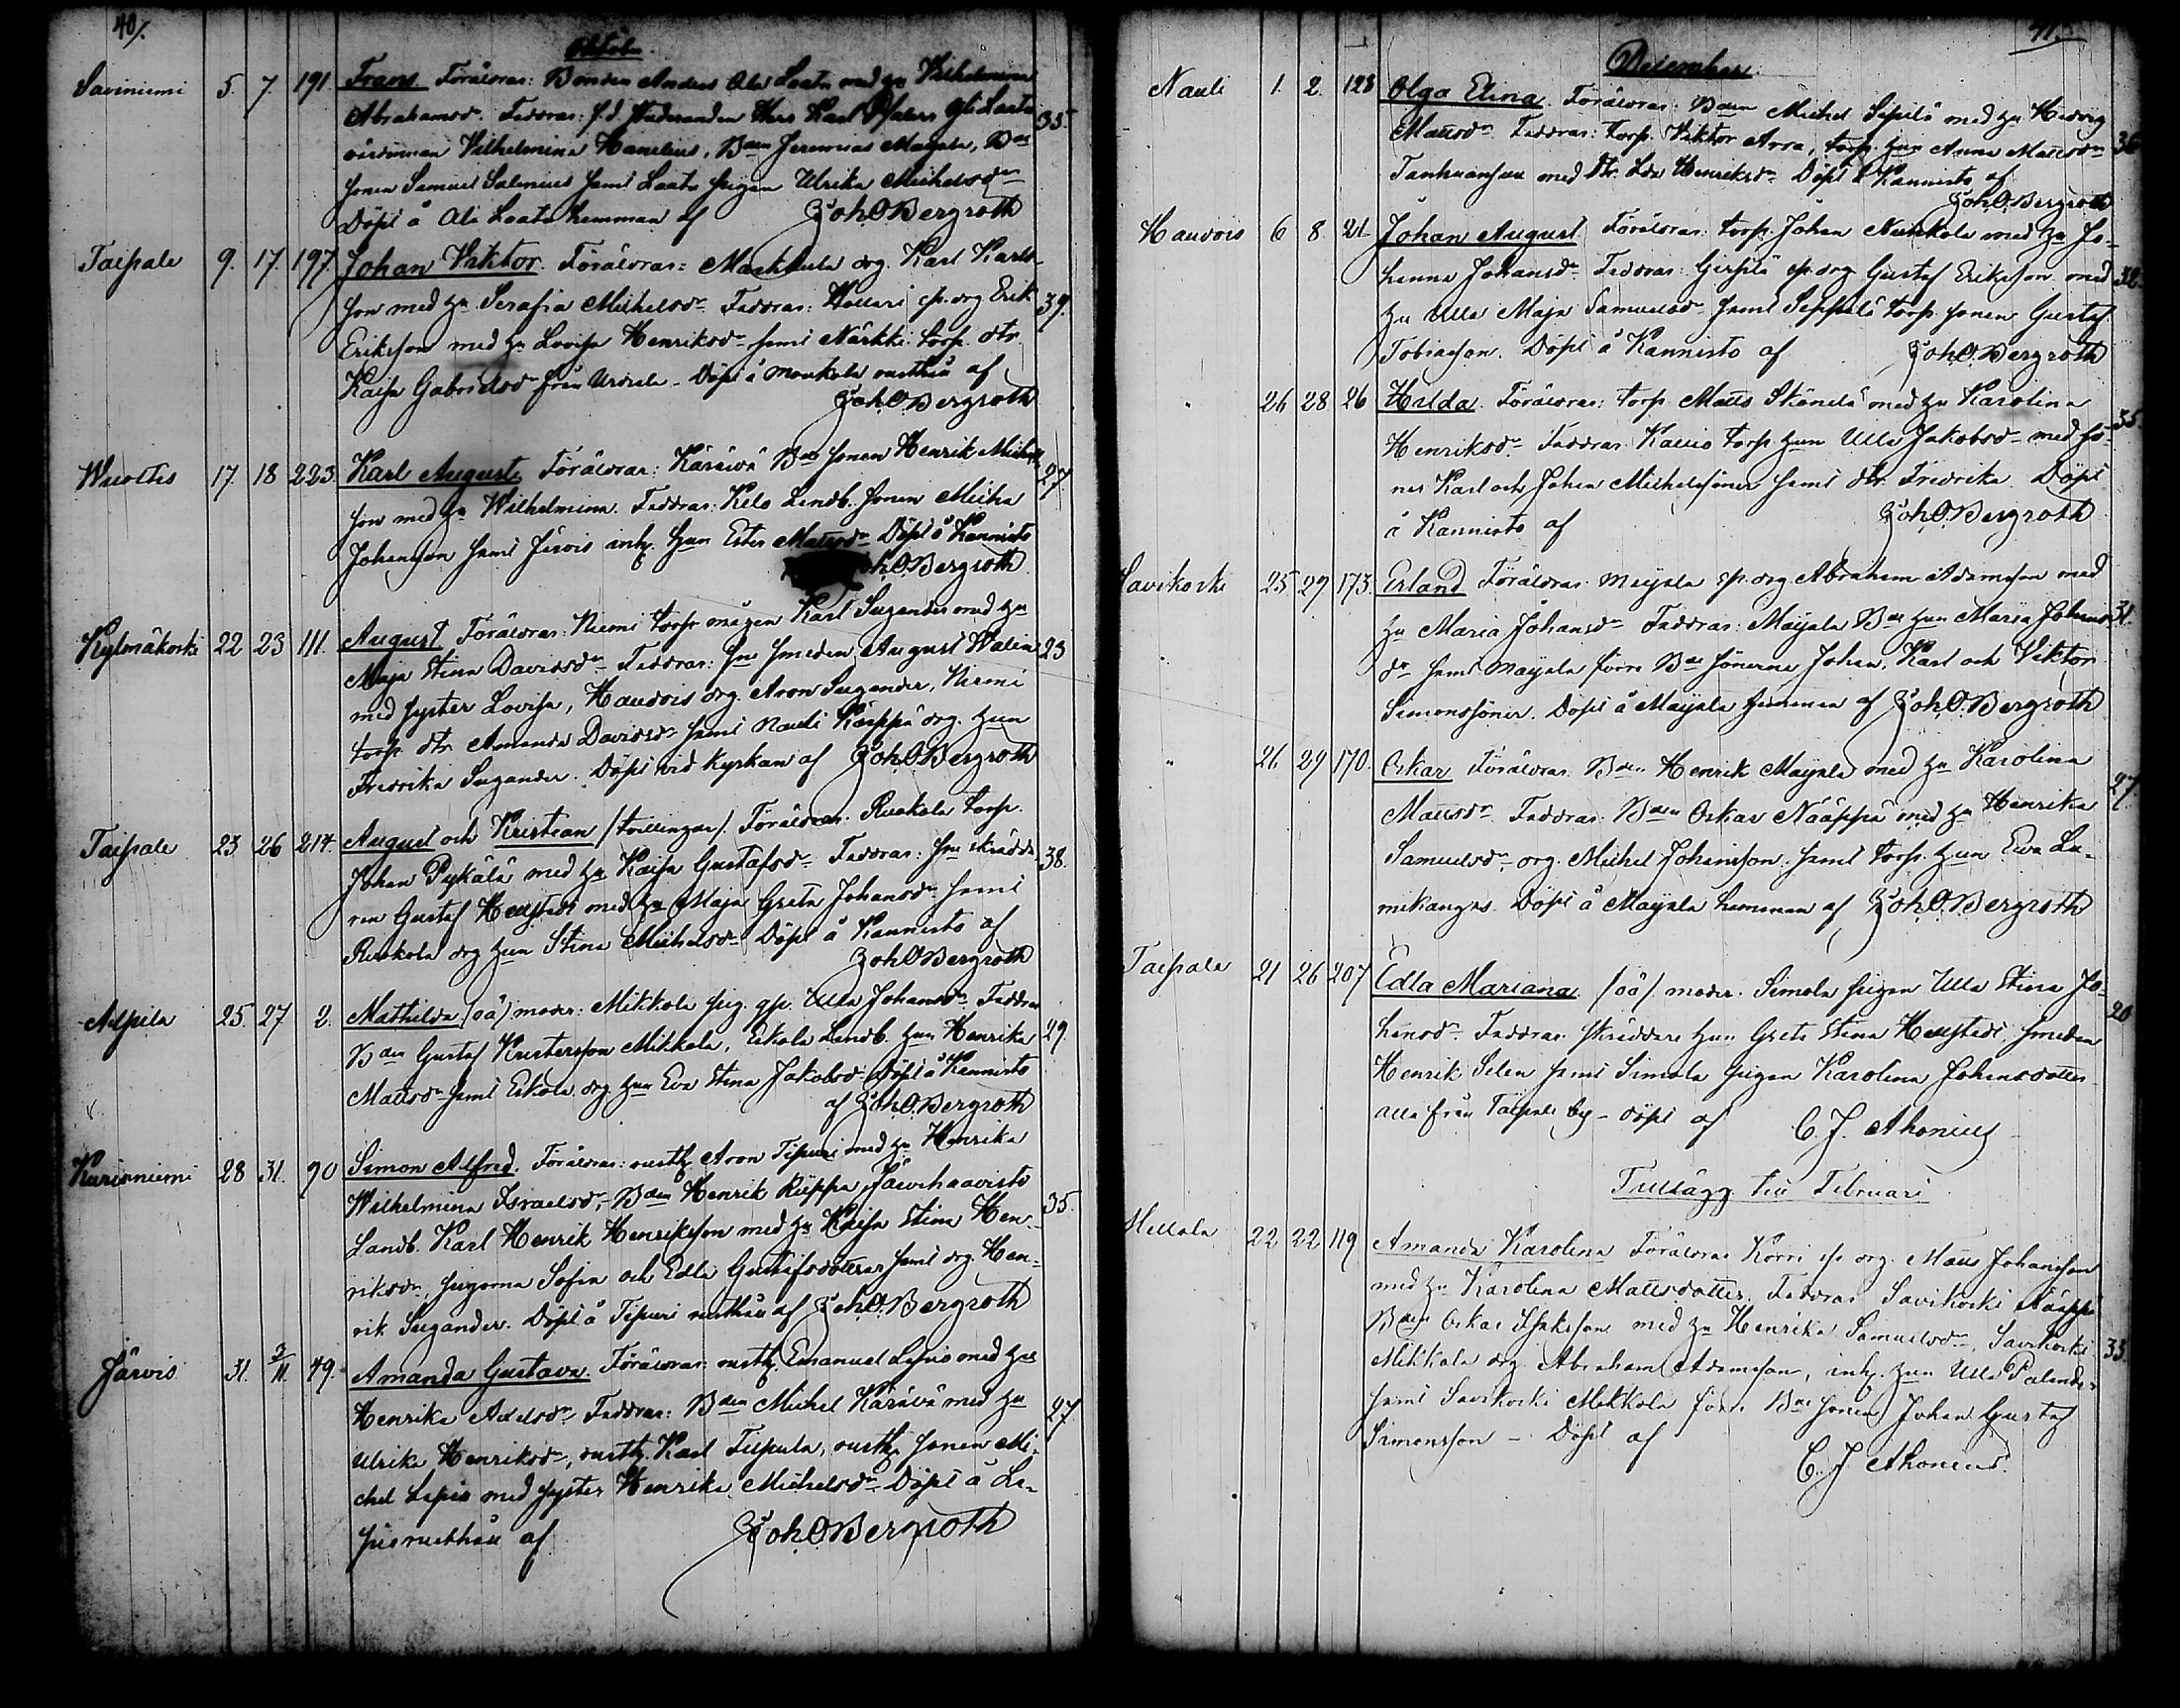 40/.
Oktober.
Saviniemi 5. 7. 191. Frans. Föräldrar: Bonden Anders Ala Laato med hu Vilhelmina
Abrahamsdr. Faddrar: f.d. Studeranden Herr Karl Ala Laato 35.
Vilhelmina Hanelius, Bden Jeremias Mayala, Bde
sonen Samuel Salenius samt Laato pigan Ulrika Michelsdr
Döpt å Ala Laato hemman af Joh.O.Bergroth
Taipale 9. 17. 197. Johan Viktor. Föräldrar: Markkula drg. Karl Karls-
son med hu Serafia Michelsdr Faddrar: sp. drg Erik 39.
Eriksson med hu Lovisa Henriksdr samt Närkki torp. dtr
Kaisa Gabrielsdr från Urdiala - Döpt å rusthåll af
Joh.O.Bergroth
Wuoltis 17. 18 223. Karl August. Föräldrar: Käräwä Bde sonen Henrik Michels 27.
son med hu Wilhelmina. Faddrar: Kelo Landb. sonen Micha
Johansson samt Järvis inh. hun Ester Mattsdr Döpt å Kannisto
Joh.O.Bergroth
Kylmäkoski 22 23 111. August Föräldrar: Niemi torp mågen Karl Sugander med hu
Maja Stina Davidsdr Faddrar: smeden August Walin 23
med syster Lovisa, Haudois drg. Aron Sugander, Niemi
torp. dtr Amanda Davidsdr samt Nauli Käppä drg. hun
Fredrika Sugander. Döpt vid kyrkan af Joh.O.Bergroth
Taipale 23 26 214. August och Kristian /tvillingar/. Föräldrar: Ruokola torp.
Johan Pykälä med hu Kaisa Gustafsdr Faddrar: skrädda 38.
ren Gustaf Hellstedt med hu Maja Greta Johansdr samt
Ruokola drg hun Stina Michelsdr Döpt å Kannisto af
Joh.O.Bergroth
Arpila 25. 27 2. Mathilda /oä/ moder: Mikkola pig. Ulla Johansdr Faddrar
Bden Gustaf Kristersson Mikkola, Eskola Landb. hun Henrika 29.
Mattsdr samt Eskola drg hun Eva Stina Jakobsdr Döpt å Kannisto
af Joh.O.Bergroth
Kurisniemi 28 31. 90 Simon Alfred. Föräldrar: rusth. Aron Tipuri med hu Henrika
Wilhelmina Israelsdr. Bden Henrik Räppä, 35.
Landb. Karl Henrik Henriksson med hu Kaisa Stina Hen-
riksdr, pigorna Sofia och Edla Gustafsdöttrar samt drg. Hen-
rik Sugander. Döpt å Tipuri rusthåll af Joh.O.Bergroth
Järvis 31. 3/11. 49. Amanda Gustava. Föräldrar: rusth. Emanuel Lepis med hu
Henrika Axelsdr Faddrar: Bden Michel Käräwä med hu 27.
Ulrika Henriksdr, rusth. Karl Tupula, rusth. sonen Mi-
chel Lepis med syster Henrika Michelsdr Döpt å Le-
pis rusthåll af Joh.O.Bergroth
41.
December.
Nauli 1. 2. 128 Olga Elina. Föräldrar: Bden Michel Sipilä med hu Hedvig
Mattsdr Faddrar: torp. Viktor Arra, torp. hun Anna Mattsdr 36
Tanhuanpää med dtr. Ida Henriksdr Döpt å Kannisto af
Joh.O.Bergroth
Haudois 6 8. 21. Johan August Föräldrar: torp. Johan Nuukola med hu Jo-
hanna Johansdr Faddrar: sp. drg Gustaf Eriksson med 32.
hu Ulla Maja Samuelsdr samt Seppälä torp. sonen Gustaf
Tobiasson. Döpt å Kannisto af Joh.O.Bergroth
" 26 28 26 Hilda. Föräldrar: torp Matts Skinilä med hu Karolina
Henriksdr Faddrar: Kallio torp. hun Ulla Jakobsdr med sö- 35.
ner Karl och Johan Michelssöner samt dtr. Fredrika Döpt
å Kannisto af Joh.O.Bergroth
Savikoski 25 29 173. Erland Föräldrar: Mayala sp. drg Abraham Adamsson med
hu Maria Johansdr Faddrar: Mayala Bde hun Maria Johans 31.
dr samt Mayala förre Bde sönerne Johan, Karl och Viktor
Simonssöner. Döpt å Mayala hemman af Joh.O.Bergroth
" 26 29 170. Oskar Föräldrar: Bden Henrik Mayala med hu Karolina
Mattsdr Faddrar: Bden Oskar Nääppä med hu Henrika 27.
Samuelsdr drg. Michel Johansson samt torp. hun Eva La-
mikangas. Döpt å Mayala hemman af Joh.O.Bergroth
Taipale 21 26 207 Edla Mariana /oä/. moder. Simola pigan Ulla Stina Jo- 20
hansdr. Faddrar: skräddare hun Greta Stina Hellstedt, smeden
Henrik Selin samt Simola pigan Karolina Johansdotter
alla från Taipale by - döpt af C. J. Ahonius
Tillägg till Februari
Mellola 22 22 119 Amanda Karolina Föräldrar Korri sp drg. Matts Johansson
med hu Karolina Mattsdotter. Faddrar Savikoski Nääppä
Bden Oskar Isaksson med hu Henrika Samuelsdr, Savikoski 33.
Mikkola drg. Abraham Adamsson, inh. hun Ulla Palander
samt Savikoski Mikkola förre Bde sonen Johan Gustaf
Simonsson - Döpt af C. J. Ahonius.